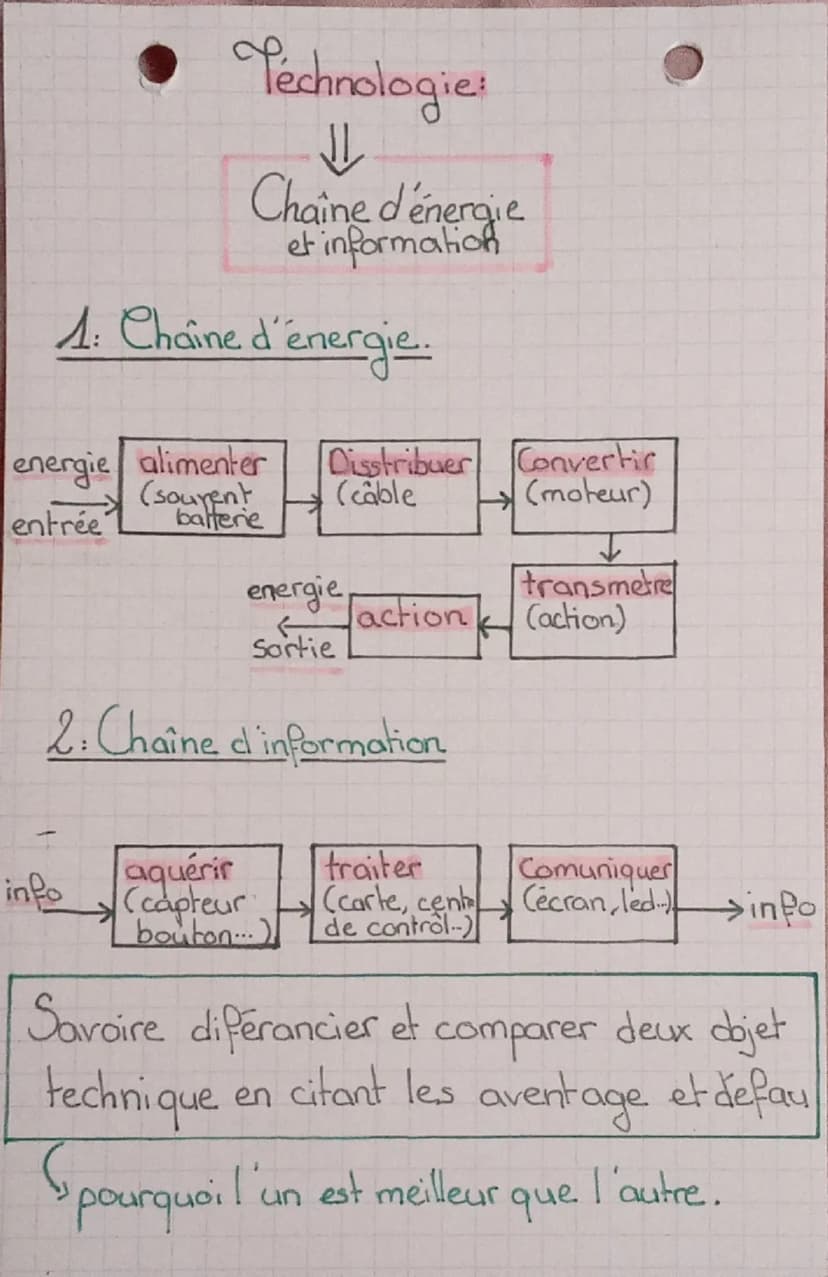 Téchnologie:
Chaîne d'énergie
et information
1: Chaîne d'énergie.
energie
entrée
alimenter
(souvent
batterie
Disstribuer
(câble
Convertir
(moteur)
transmetre
(action)
action
energie
sortie
2: Chaîne d'information
info
aquérir
(capteur
bouton...)
traiter
(carte, cent
de contrôl..)
Comuniquer
(écran, led..)
info
Savoire diférancier et comparer deux objet
technique en citant les aventage et défau
pourquoi l'un est meilleur que l'autre.